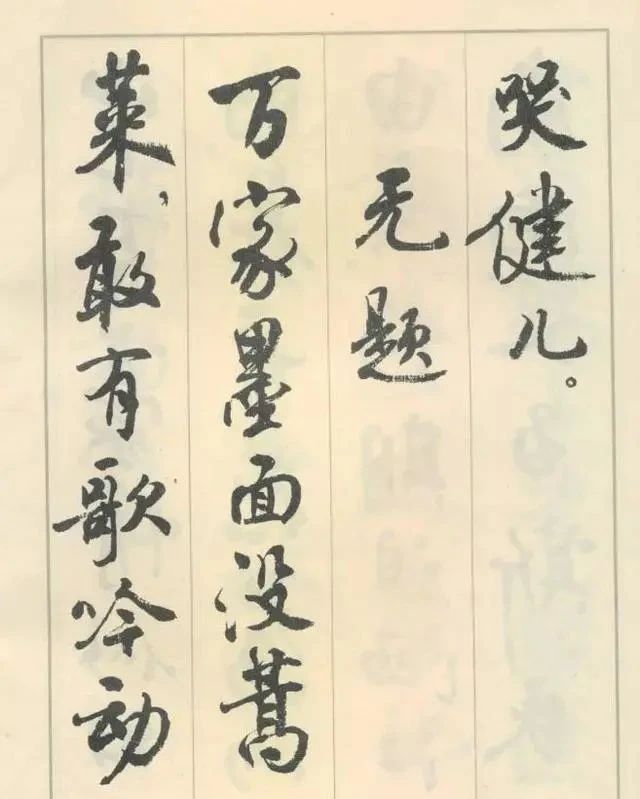 哭健儿。
无题
万家墨面没蒿
莱，敢有歌吟动